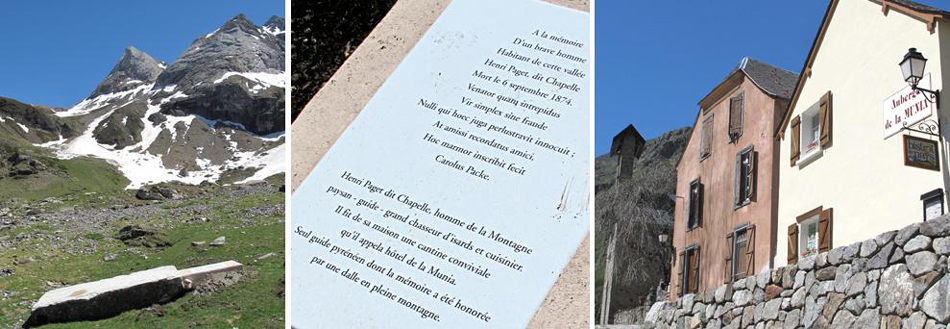 A la mémoire
D'un brave homme
Habitant de cette vallée
Henri Paget, dit Chapelle
Mort le 6 septembre 1874.
Venator quam intrepidus
Vir simplex sine fraude
Nulli qui hoec juga perlustravit innocuit ;
At amissi recordatus amici,
Hoc marmor inscribit fecit
Carolus Packe.
Henri Paget dit Chapelle, homme de la Montagne
paysan - guide - grand chasseur d'isards et cuisinier.
Il fit de sa maison une cantine conviviale
qu'il appela hôtel de la Munia.
Seul guide pyrénéen dont la mémoire a été honorée
par une dalle en pleine montagne.
Auberge
de la MUNIA